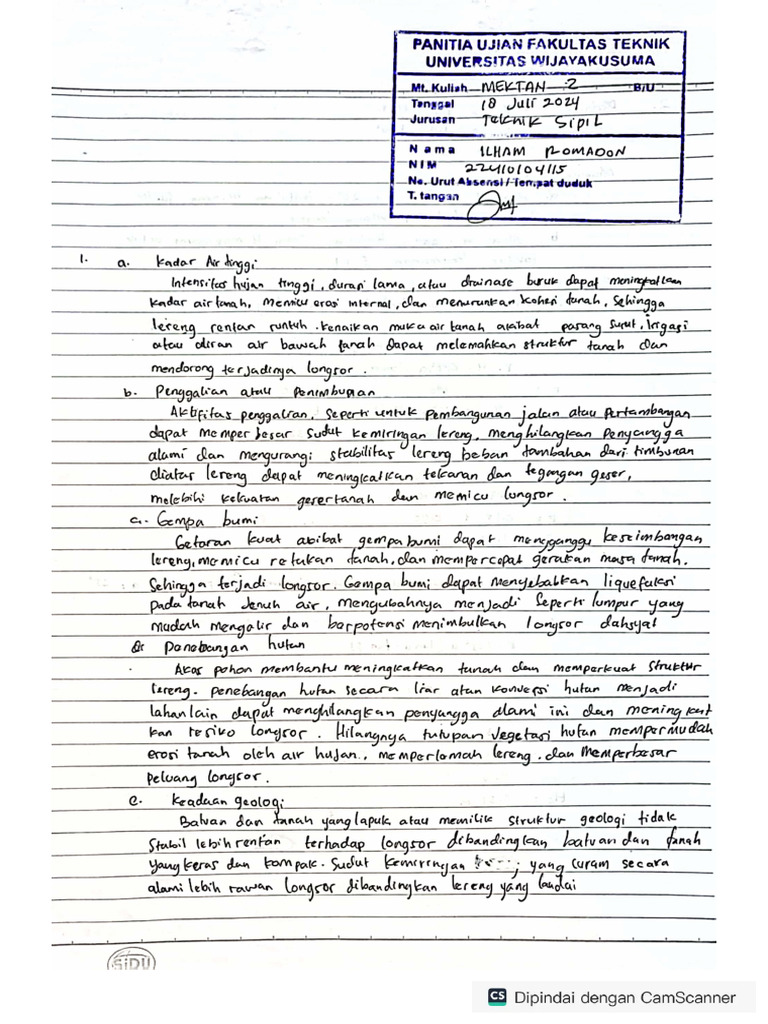 PANITIA UJIAN FAKULTAS TEKNIK
UNIVERSITAS WIJAYAKUSUMA
Mt. Kuliah MEKTAN 2 B/U
Tanggal 18 Juli 2024
Jurusan Teknik Sipil
Nama ILHAM ROMADON
NIM 22410104115
No. Urut Absensi / Tempat duduk
T. tangan
1. a. Kadar Air tinggi
Intensitas hujan tinggi, durasi lama, atau drainase buruk dapat meningkatkan
kadar air tanah, memicu erosi internal, dan menurunkan kohesi tanah, Sehingga
lereng rentan runtuh. kenaikan muka air tanah akibat pasang surut, irigasi
atau aliran air bawah tanah dapat melemahkan struktur tanah dan
mendorong terjadinya longsor.
b. Penggalian atau Penimbunan
Aktifitas penggalian, seperti untuk pembangunan jalan atau pertambangan
dapat memperbesar sudut kemiringan lereng, menghilangkan penyangga
alami dan mengurangi stabilitas lereng beban tambahan dari timbunan
diatas lereng dapat meningkatkan tekanan dan tegangan geser,
melebihi kekuatan geser tanah dan memicu longsor.
c. Gempa bumi
Getaran kuat akibat gempa bumi dapat mengganggu keseimbangan
lereng, memicu retakan tanah, dan mempercepat gerakan masa tanah.
Sehingga terjadi longsor. Gempa bumi dapat menyebabkan liquefaksi
pada tanah Jenuh air, mengubahnya menjadi seperti lumpur yang
mudah mengalir dan berpotensi menimbulkan longsor dahsyat
d. Penebangan hutan
Akar pohon membantu meningkatkan tanah dan memperkuat struktur
lereng. penebangan hutan secara liar atau konversi hutan menjadi
lahan lain dapat menghilangkan penyangga alami ini dan meningkat
kan resiko longsor. Hilangnya tutupan vegetasi hutan mempermudah
erosi tanah oleh air hujan, memperlemah lereng, dan memperbesar
peluang longsor.
e. Keadaan geologi
Batuan dan tanah yang lapuk atau memilik struktur geologi tidak
stabil lebih rentan terhadap longsor dibandingkan batuan dan tanah
yang keras dan kompak. Sudut kemiringan yang curam secara
alami lebih rawan longsor dibandingkan lereng yang landai
SiDU
CS Dipindai dengan CamScanner